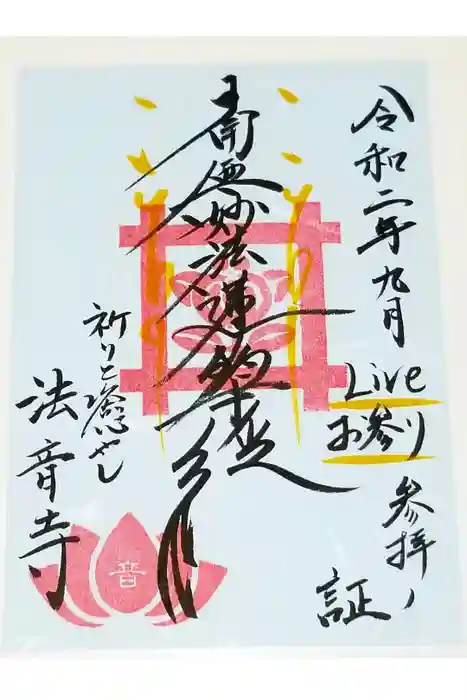 令和二年九月
Live
お参り
参拝ノ
証
南無妙法蓮華経
祈りと癒やし
法音寺
音